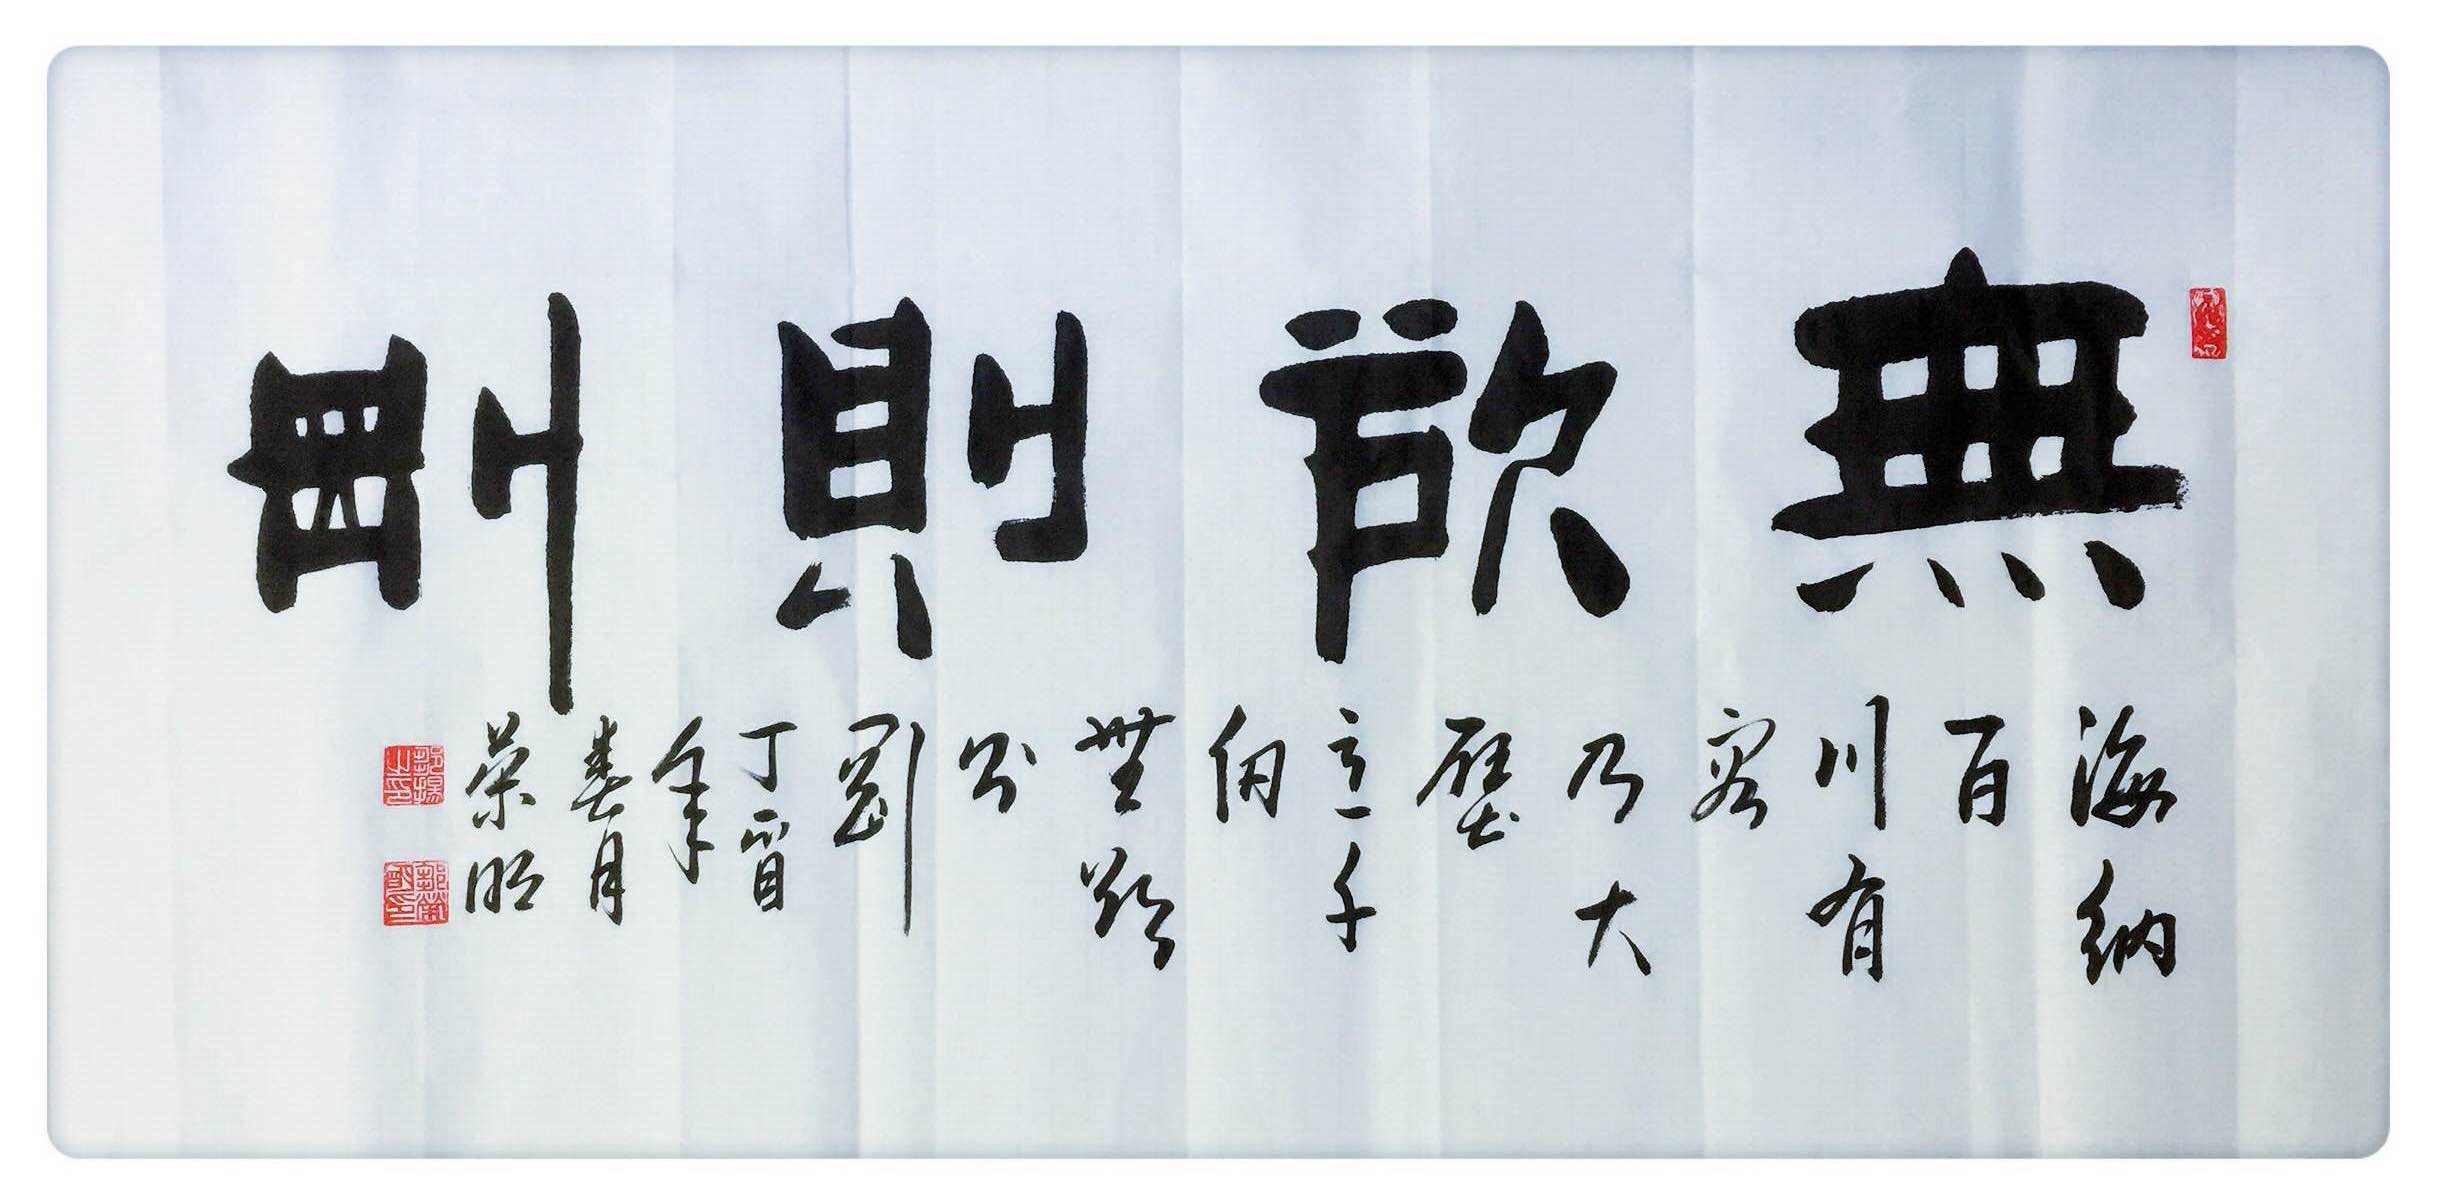 無欲則剛
海納
百
川有
容
乃大
壁
立千
仞
無欲
則
剛
丁酉
年
春月
榮明